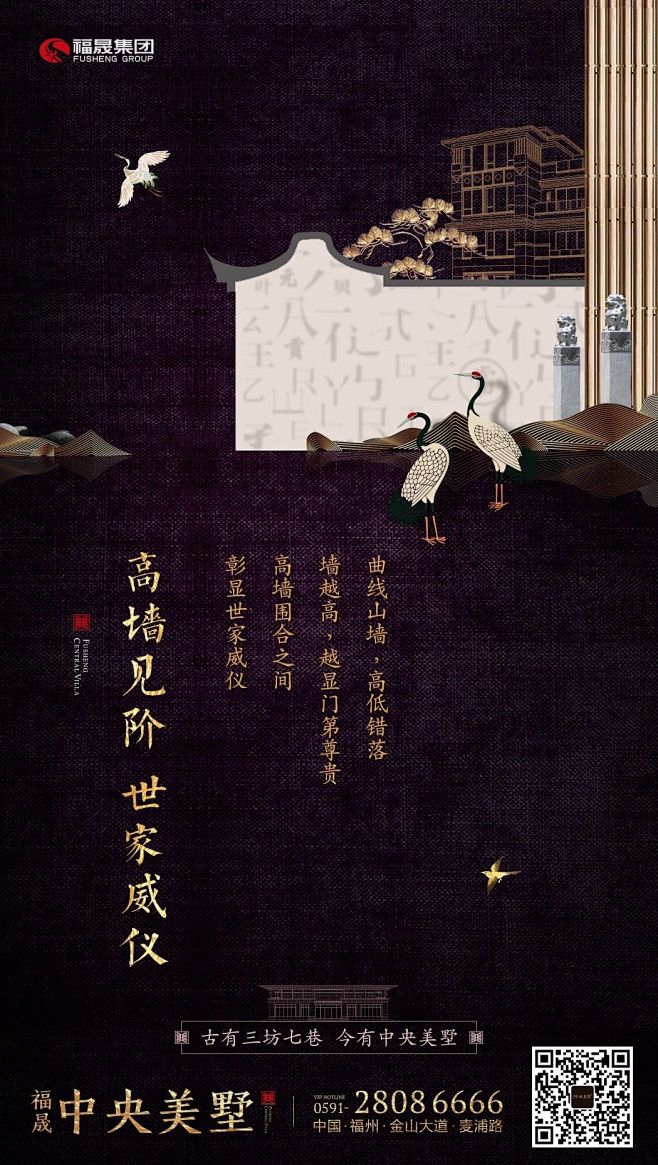 福晟集团
FUSHENG GROUP
曲线山墙，高低错落
墙越高，越显门第尊贵
高墙围合之间
彰显世家威仪
高墙见阶 世家威仪
FUSHENG
CENTRAL VILLA
古有三坊七巷 今有中央美墅
福晟 中央美墅
VIP HOTLINE
0591-28086666
中国·福州·金山大道·麦浦路